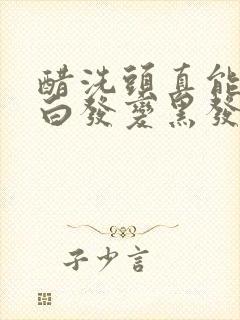 醋洗頭真能
白發變黑發
子少言